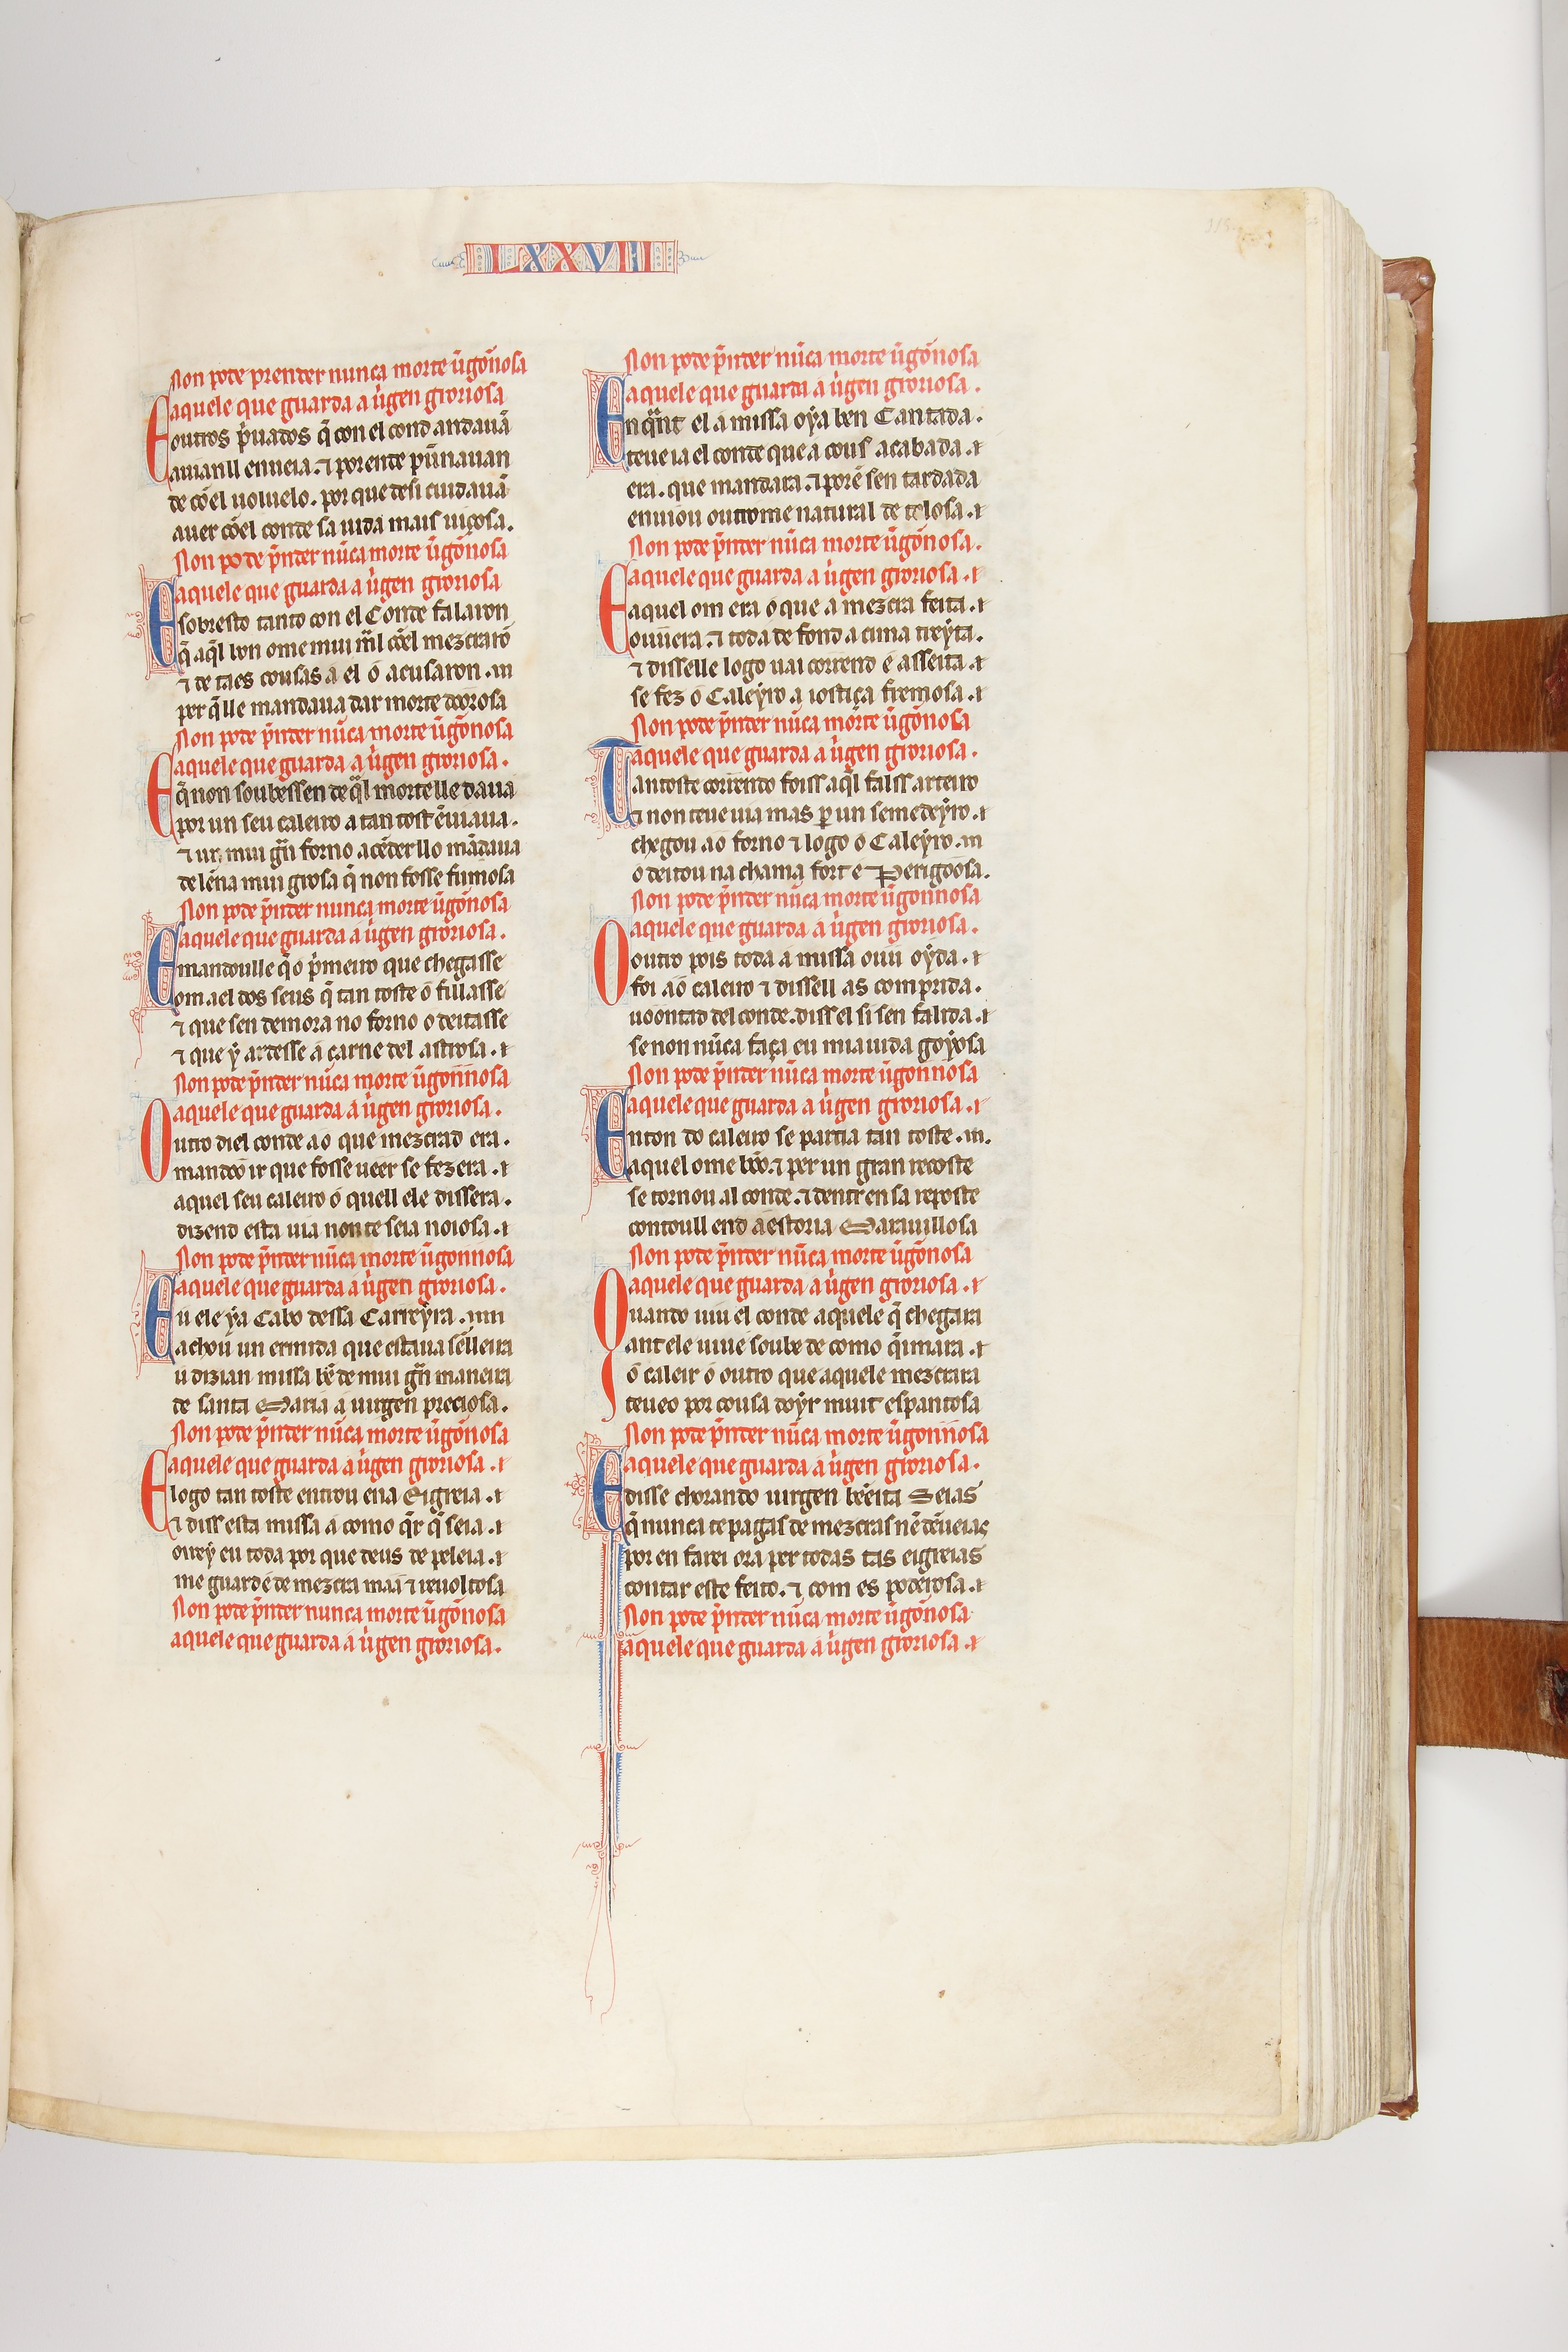 LXXVIII
Non pode prender nunca morte ũgõnosa
aquele que guarda a ũgen gloriosa
Eoutros p̃uados q̃ con el cond andauã
auianll enueia. ⁊ porende pũnauan
de cõel uoluelo. por que desi cuidauã
auer cõel conde sa uida mais uiçosa.
Non pode p̃nder nũca morte ũgõnosa
aquele que guarda a ũgen gloriosa
E sobresto tanto con el Conde falaron
q̃ aq̃l bon ome mui m̃l cõel mezcrarõ
⁊ de taes cousas a el o acusaron. m
per q̃ lle mandaua dar morte doorosa
Non pode p̃nder nũca morte ũgõnosa
aquele que guarda a ũgen gloriosa.
E q̃ non soubessen de q̃l morte lle daua
por un seu caleiro atan tost ẽuiaua.
⁊ un mui gñ forno acẽder llo mãdaua
de leña mui grosa q̃ non fosse fumosa
Non pode p̃nder nunca morte ũgõnosa
aquele que guarda a ũgen gloriosa.
E mandoulle q̃ o p̃meiro que chegasse
om a el dos seus q̃ tan toste o fillasse
⁊ que sen demora no forno o deitasse
⁊ que ẏ ardesse a çarne del astrosa. ⁊
Non pode p̃nder nũca morte ũgonnosa
aquele que guarda a ũgen gloriosa.
Outro diel conde ao que mezcrad era.
mandoo ir que fosse ueer se fezera. ⁊
aquel seu caleiro o quell ele dissera.
dizend esta uia non te seia noiosa. ⁊
Non pode p̃nder nũca morte ũgonnosa
aquele que guarda a ũgen gloriosa.
E u ele ẏa Cabo dessa Carreẏra. mi
achou un ermida que estaua sẽlleira
u dizian missa bẽ de mui gñ maneira
de santa Maria a uirgen preciosa.
Non pode p̃nder nũca morte ũgõnosa
aquele que guarda a ũgen gloriosa. ⁊
E logo tan toste entrou ena Eigreia. ⁊
⁊ diss esta missa a como q̃r q̃ seia. ⁊
oireẏ eu toda por que deus de peleia. ⁊
me guardẽ de mezcra maa ⁊ reuoltosa
Non pode p̃nder nunca morte ũgõnosa
aquele que guarda a ũgen gloriosa.
Non pode p̃nder nũca morte ũgõnosa
aquele que guarda a ũgen gloriosa.
Enq̃nt el a missa oẏa ben Cantada.
teue ia el conde que a cous acabada. ⁊
era. que mandara. ⁊ porẽ sen tardada
enuiou outrome natural de tolosa. ⁊
Non pode p̃nder nũca morte ũgõnosa.
aquele que guarda a ũgen gloriosa. ⁊
E aquel om era o que a mezcra feita. ⁊
ouuera. ⁊ toda de fond a cima treẏta.
⁊ disselle logo uai corrend e asseita. ⁊
se fez o Caleẏro a iostiça fremosa. ⁊
Non pode p̃nder nũca morte ũgõnosa
aquele que guarda a ũgen gloriosa.
Tantoste correndo foiss aq̃l falss arteiro
⁊ non teue uia mas ꝑ un semedeẏro. ⁊
chegou ao forno ⁊ logo o Caleẏro. m
o deitou na chama fort e Perigoosa.
Non pode p̃nder nũca morte ũgonnosa
aquele que guarda a ũgen gloriosa.
O outro pois toda a missa ouu oẏda. ⁊
foi ao caleiro ⁊ dissell as comprida.
uoontad del conde. diss el si sen falida. ⁊
se non nũca faça eu mia uida goẏosa
Non pode p̃nder nũca morte ũgonnosa
aquele que guarda a ũgen gloriosa. ⁊
Enton do caleiro se partia tan toste. m.
aquel ome bõo. ⁊ per un gran recoste
se tornou al conde. ⁊ dentr en sa reposte
contoull end a estoria Marauillosa
Non pode p̃nder nũca morte ũgõnosa
aquele que guarda a ũgen gloriosa. ⁊
Quando uiu el conde aquele q̃ chegara
antele uiue soube de como q̃imara. ⁊
o caleir o outro que aquele mezcrara
teueo por cousa doẏr muit espantosa
Non pode p̃nder nũca morte ũgonnosa
aquele que guarda a ũgen gloriosa.
E disse chorando uirgen bẽeita Seias
q̃ nunca te pagas de mezcras nẽ dẽueias
por en farei ora per todas tas eigreias
contar este feito. ⁊ com es poderosa. ⁊
Non pode p̃nder nũca morte ũgõnosa
aquele que guarda a ũgen gloriosa. ⁊